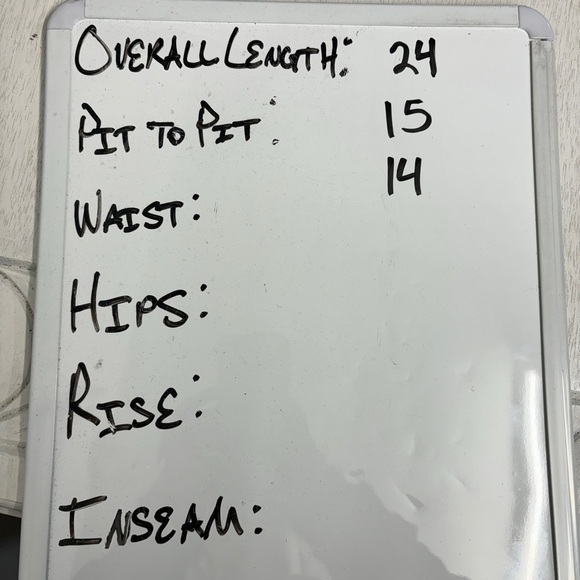 OVERALL LENGTH: 24
PIT TO PIT: 15
WAIST: 14
HIPS:
RISE:
INSEAM: